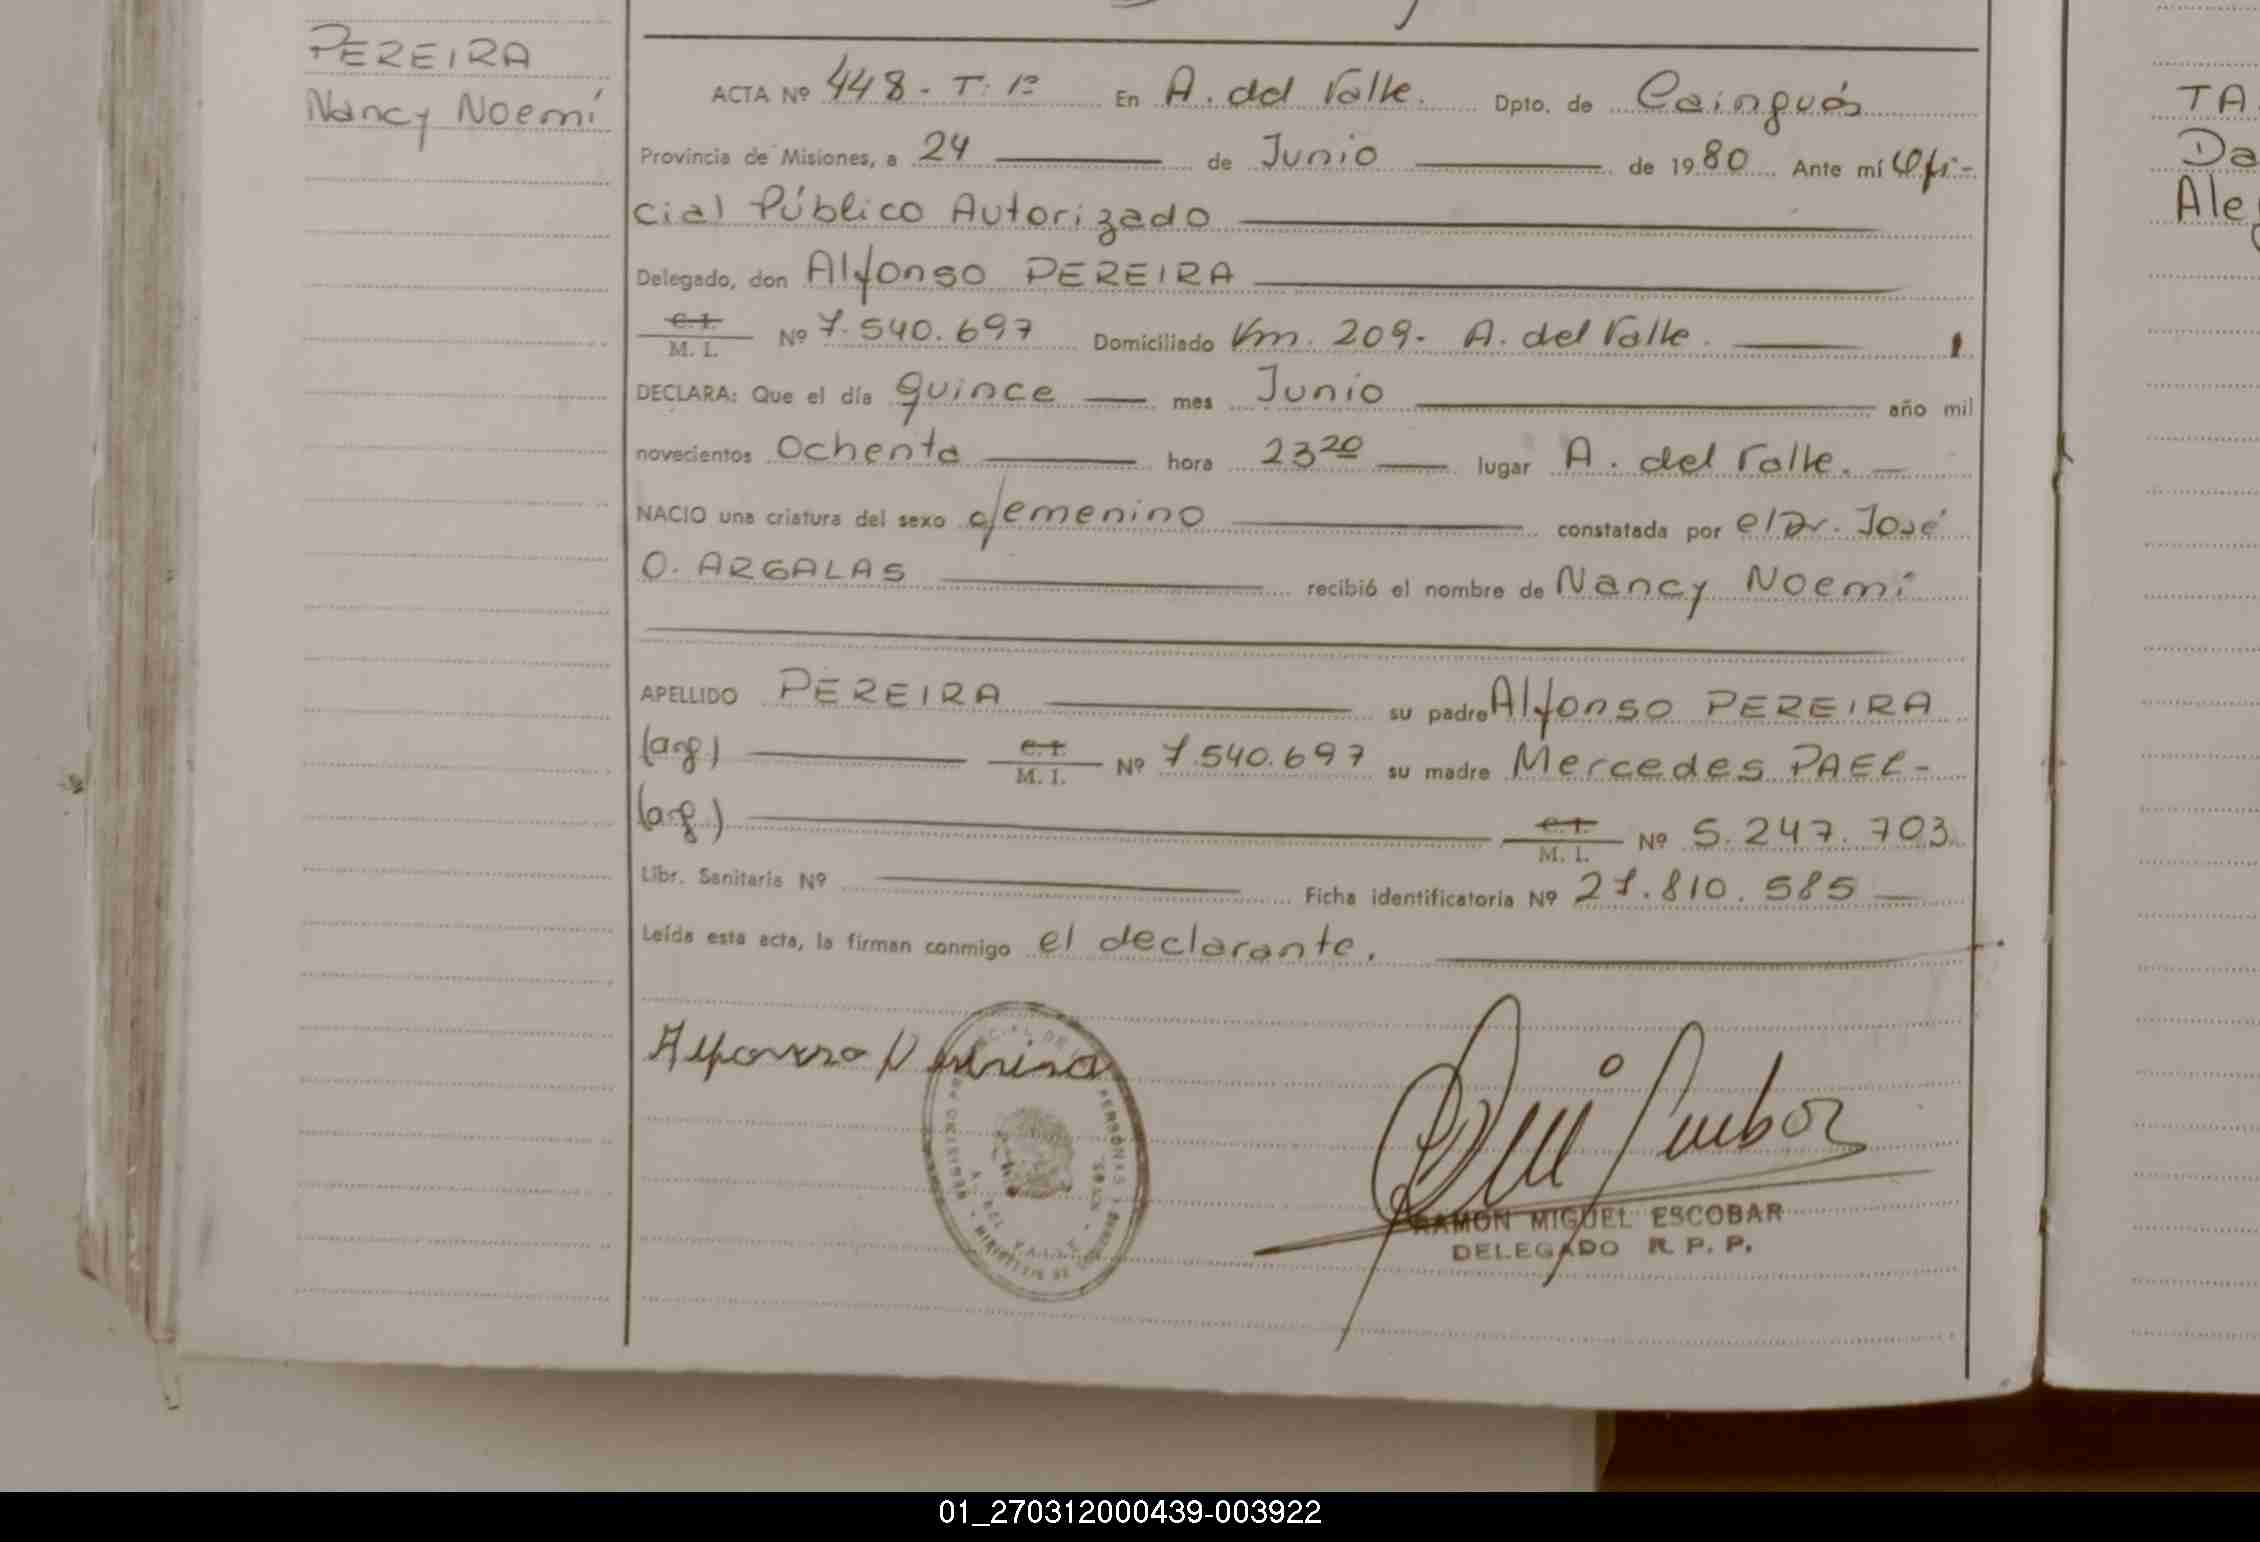 PEREIRA
Nancy Noemí
ACTA Nº 448 - T. 1º En A. del Valle. Dpto. de Cainguás
Provincia de Misiones, a 24 de Junio de 1980 Ante mí Ofi-
cial Público Autorizado
Delegado, don Alfonso PEREIRA
C. I.
M. I. Nº 7.540.697 Domiciliado Km. 209- A. del Valle.
DECLARA: Que el día quince mes Junio año mil
novecientos Ochenta hora 23 20 lugar A. del Valle.
NACIO una criatura del sexo femenino constatada por el Dr. José
O. ARGALAS recibió el nombre de Nancy Noemí
APELLIDO PEREIRA su padre Alfonso PEREIRA
(arg) C. I.
M. I. Nº 7.540.697 su madre Mercedes PAEL-
(arg.) C. I.
M. I. Nº 5.247.703
Libr. Sanitaria Nº Ficha identificatoria Nº 27.810.585
Leída esta acta, la firman conmigo el declarante.
Alfonso Pereira
RAMON MIGUEL ESCOBAR
DELEGADO R. P. P.
TA
Da
Ale
01_270312000439-003922